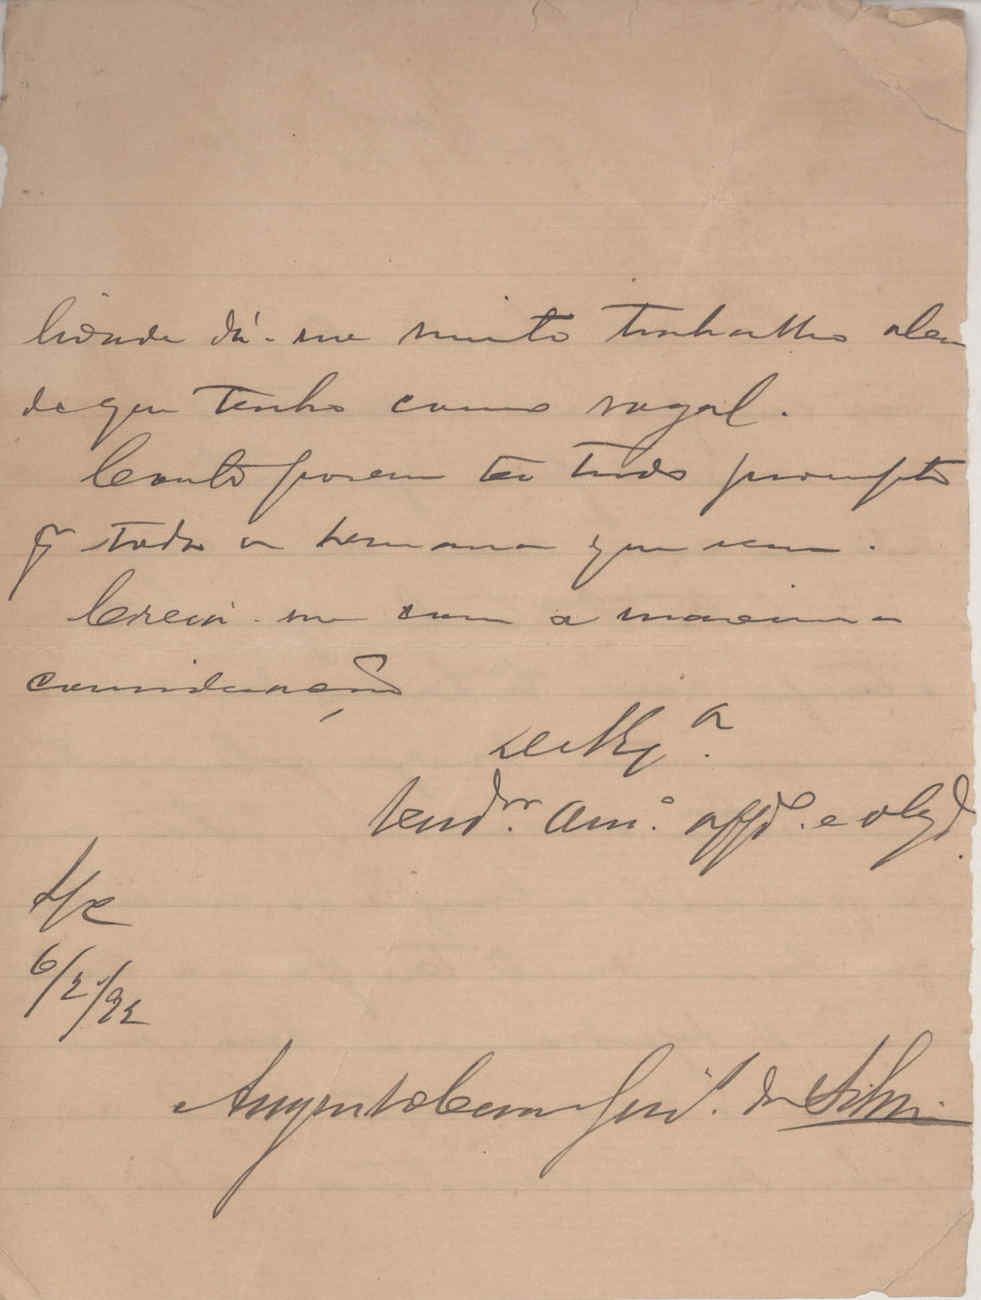 lidade dá-me muito trabalho alem
do que tenho como vogal.
Conto porem ter tudo prompto
pr toda a semana que vem.
Creia-me com a maxima
consideração
De V. Exª.
Venor. Amº. affdº. e obgdº.
S/c
6/2/92
Augusto Cesar da Silva